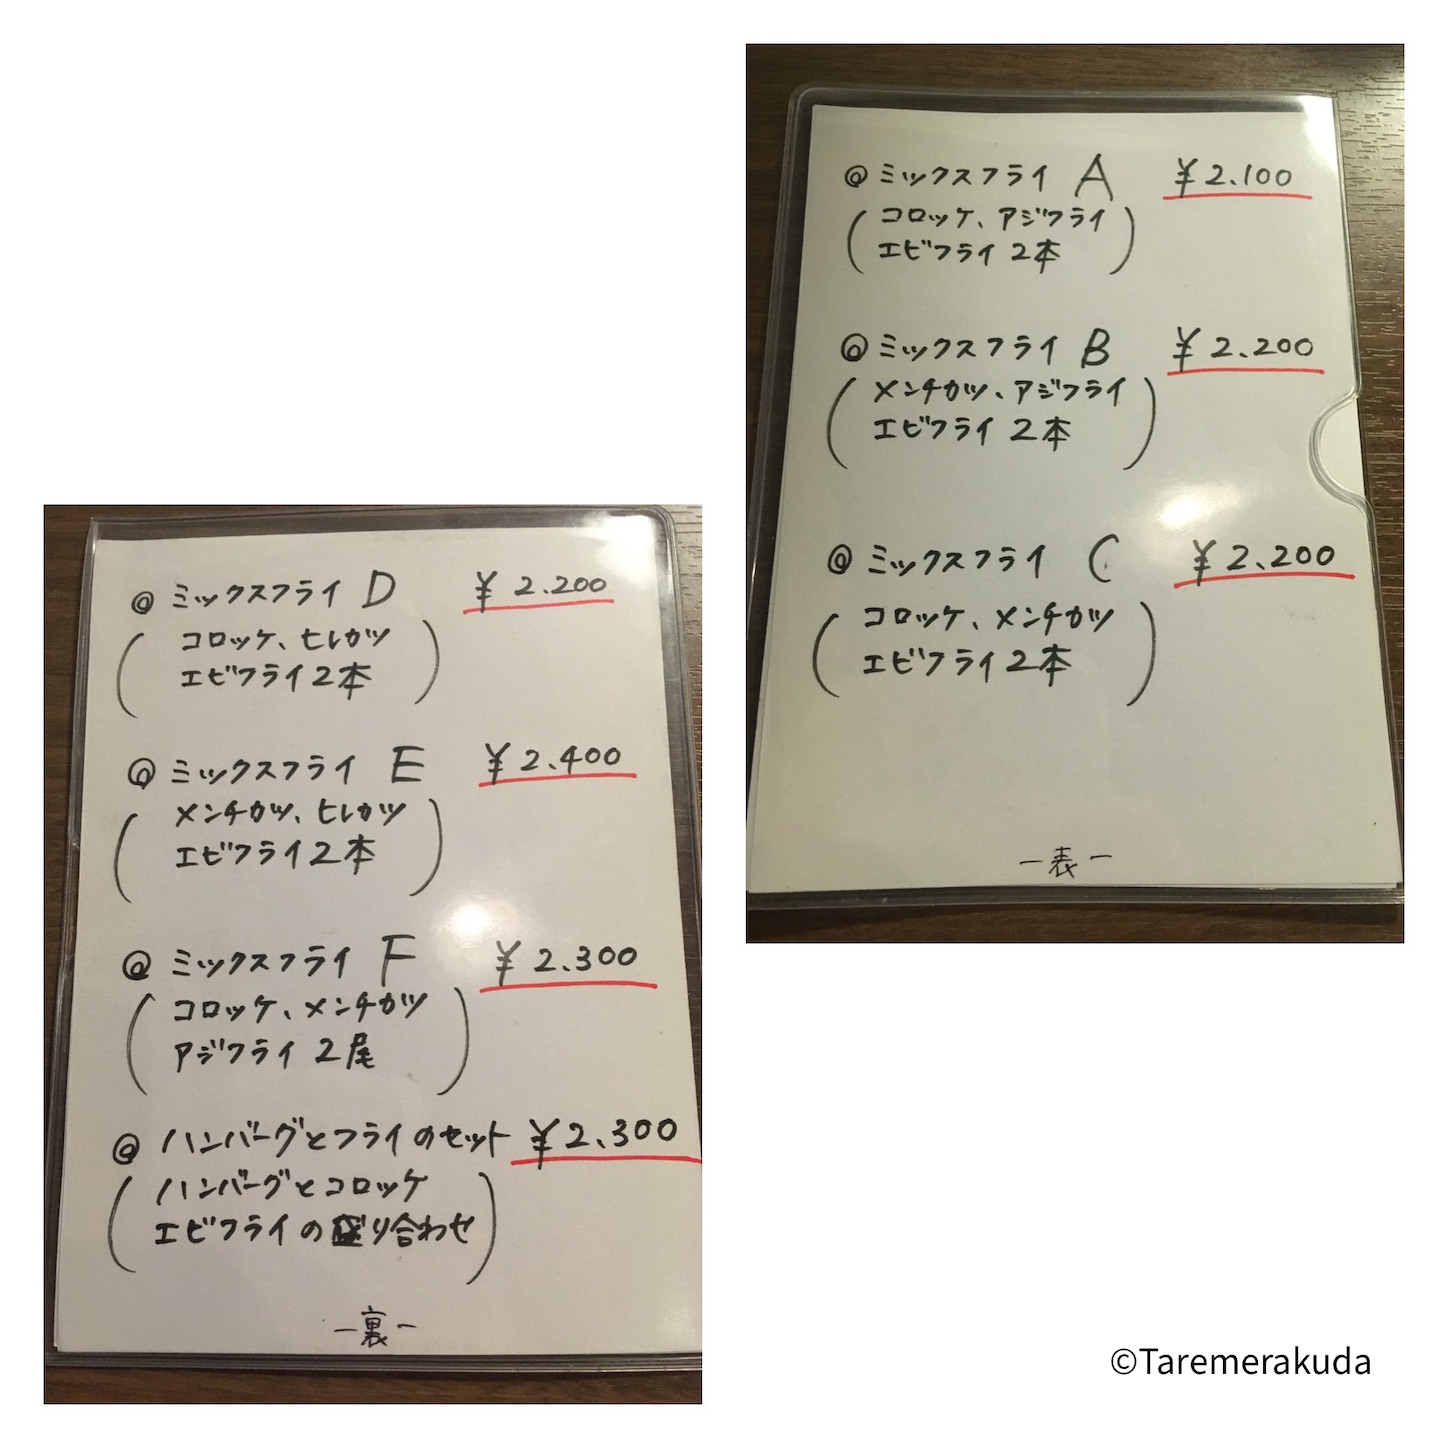 ◎ミックスフライ A ¥2.100
(コロッケ、アジフライ
エビフライ 2本)
◎ミックスフライ B ¥2.200
(メンチカツ、アジフライ
エビフライ 2本)
◎ミックスフライ C ¥2.200
(コロッケ、メンチカツ
エビフライ 2本)
ー表ー
◎ミックスフライ D ¥2.200
(コロッケ、ヒレカツ
エビフライ 2本)
◎ミックスフライ E ¥2.400
(メンチカツ、ヒレカツ
エビフライ 2本)
◎ミックスフライ F ¥2.300
(コロッケ、メンチカツ
アジフライ 2尾)
◎ハンバーグとフライのセット ¥2.300
(ハンバーグとコロッケ
エビフライの盛り合わせ)
ー裏ー
©Taremerakuda